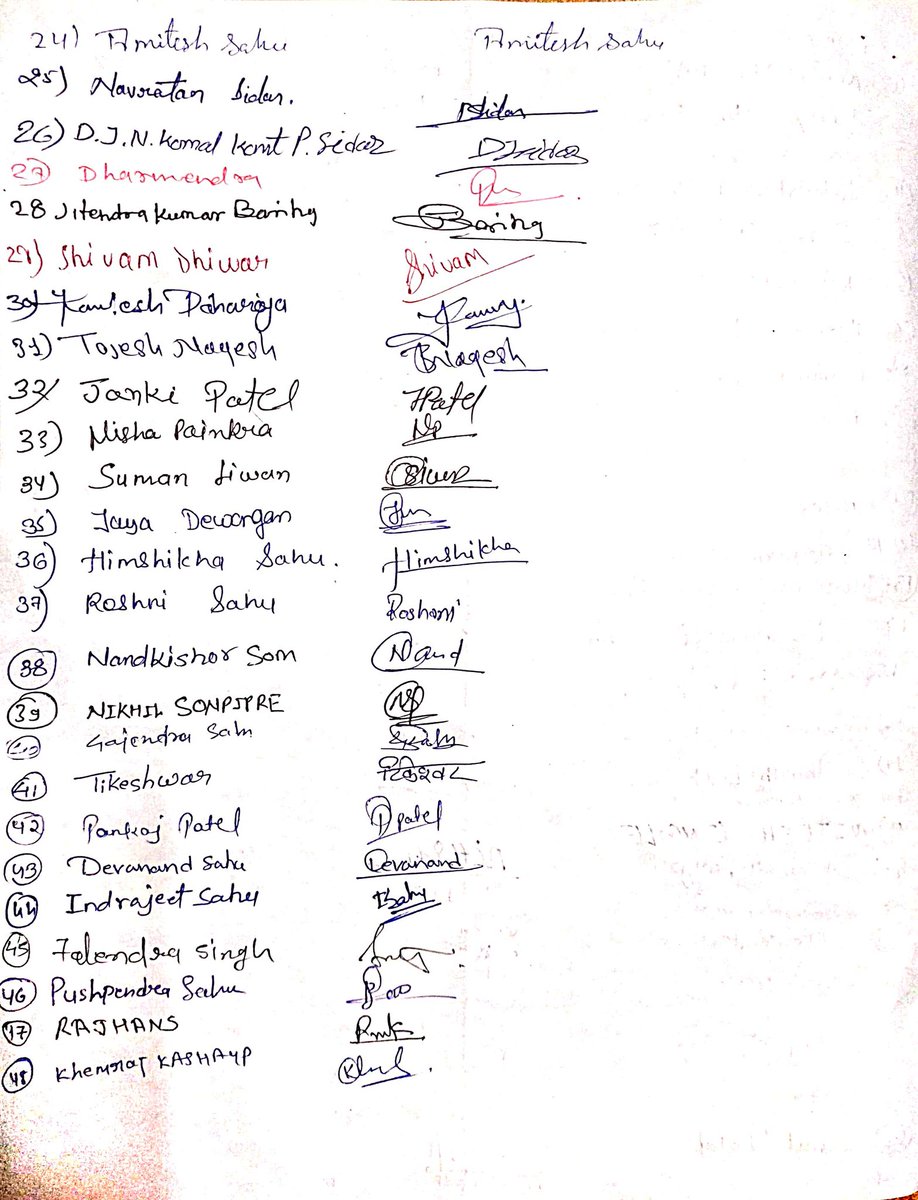 24) Amitesh Sahu Amitesh Sahu
25) Navratan Sidar. NSidar
26) D.J.N. Komal Kant P. Sidar DJSidar
27) Dharmendra
28 Jitendra Kumar Baring Baring
29) Shivam Dhiwar Shivam
30)
31) Tojesh Nagesh TNagesh
32) Janki Patel JPatel
33) Nisha Painkra NP
34) Suman Siwan
35) Jaya Dewangan
36) Himshikha Sahu. Himshikha
37) Roshni Sahu Roshani
38 Nandkishor Som Nand
39 NIKHIL SONPIPRE
Gajendra Sahu
41 Tikeshwar टिकेश्वर
42 Pankaj Patel Ppatel
43 Devanand Sahu Devanand
44 Indrajeet Sahu
45 Falendra Singh
46 Pushpendra Sahu
47 RAJHANS
48 Khemraj KASHAYP